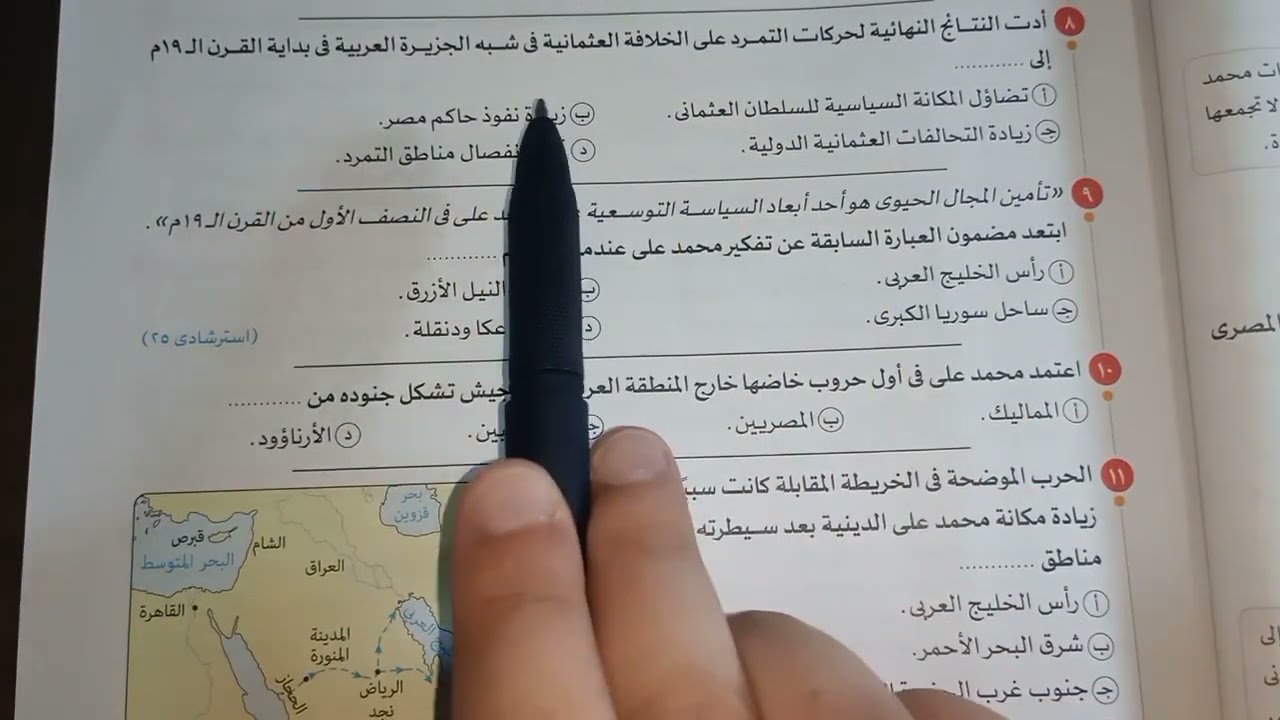 ٨ أدت النتائج النهائية لحركات التمرد على الخلافة العثمانية فى شبه الجزيرة العربية فى بداية القرن الـ ١٩م
إلى ............
أ تضاؤل المكانة السياسية للسلطان العثمانى.
ب نفوذ حاكم مصر.
ج زيادة التحالفات العثمانية الدولية.
د مناطق التمرد.
٩ «تأمين المجال الحيوى هو أحد أبعاد السياسة التوسعية على فى النصف الأول من القرن الـ ١٩م».
ابتعد مضمون العبارة السابقة عن تفكير محمد على ............
أ رأس الخليج العربى.
ب النيل الأزرق.
ج ساحل سوريا الكبرى.
د عكا ودنقلة.
(استرشادى ٢٥)
١٠ اعتمد محمد على فى أول حروب خاضها خارج المنطقة تشكل جنوده من ............
أ المماليك.
ب المصريين.
ج
د الأرناؤود.
١١ الحرب الموضحة فى الخريطة المقابلة كانت
زيادة مكانة محمد على الدينية بعد سيطرته
مناطق ............
أ رأس الخليج العربى.
ب شرق البحر الأحمر.
ج جنوب غرب
بحر
قزوين
قبرص
البحر المتوسط
الشام
العراق
القاهرة
المدينة
المنورة
الحجاز
الرياض
نجد
العربى
ات محمد
لا تجمعها
ة.
المصرى